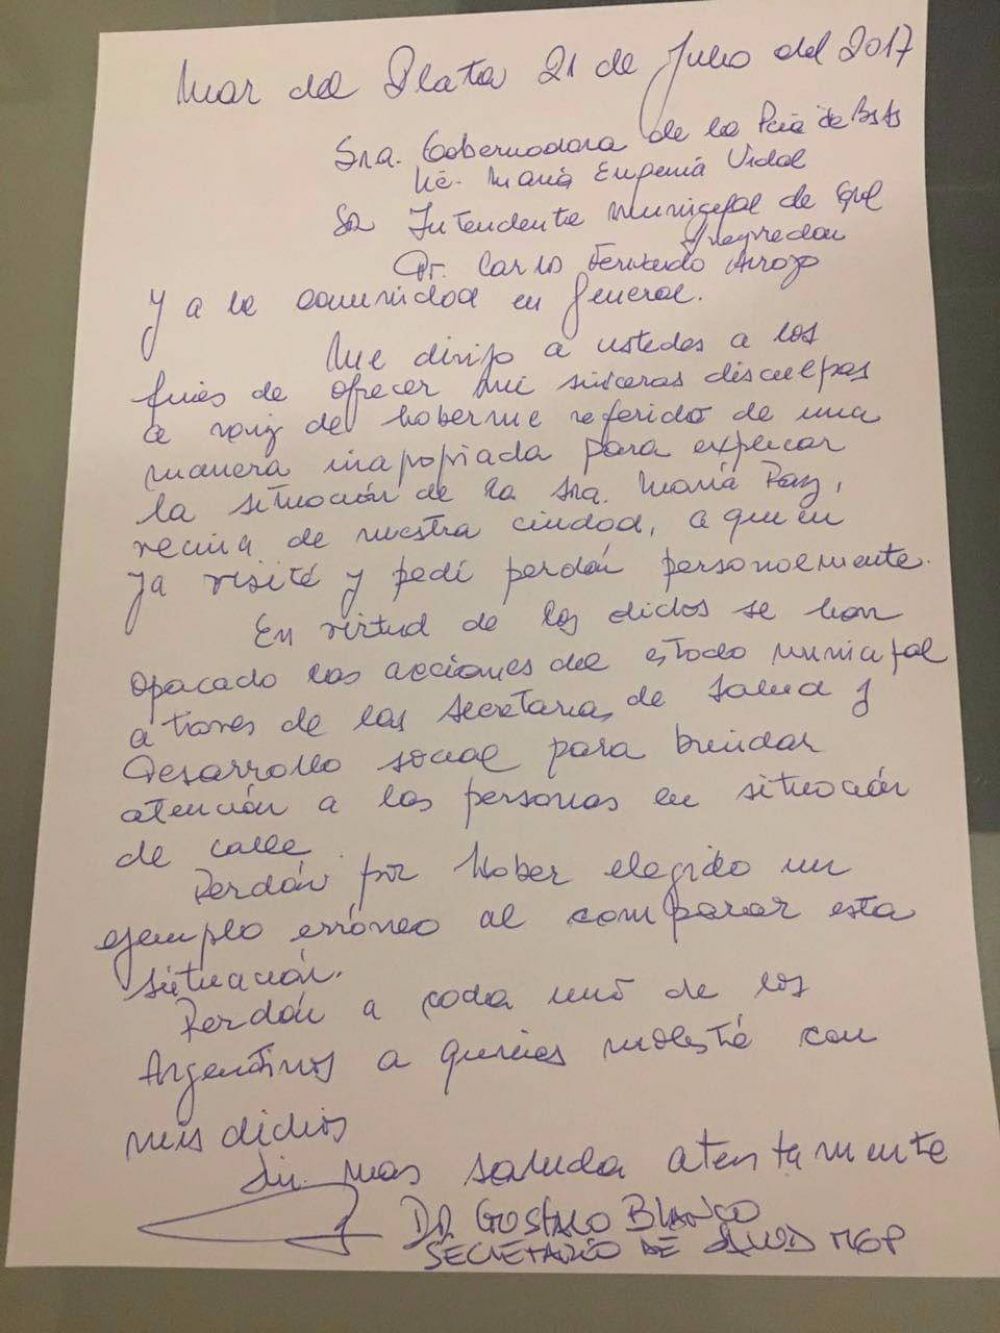 Mar del Plata 21 de Julio del 2017
Sra. Gobernadora de la Pcia de Bs As
Lic. María Eugenia Vidal
Sr Intendente Municipal de Gral
Pueyrredon
Dr. Carlos Fernando Arroyo
y a la comunidad en General.
Me dirijo a ustedes a los
fines de ofrecer mis sinceras disculpas
a raiz de haberme referido de una
manera inapopiada para explicar
la situación de la Sra. María Paz,
vecina de nuestra ciudad, a quien
ya visité y pedí perdón personalmente.
En virtud de los dichos se han
opacado las acciones del estado municipal
a traves de las secretarias de Salud y
Desarrollo social para brindar
atención a las personas en situación
de calle.
Perdón por haber elegido un
ejemplo erróneo al comparar esta
situación.
Perdón a cada uno de los
Argentinos a quienes molesté con
mis dichos
Sin mas saluda atentamente
DR. GUSTAVO BLANCO
SECRETARIO DE SALUD MGP